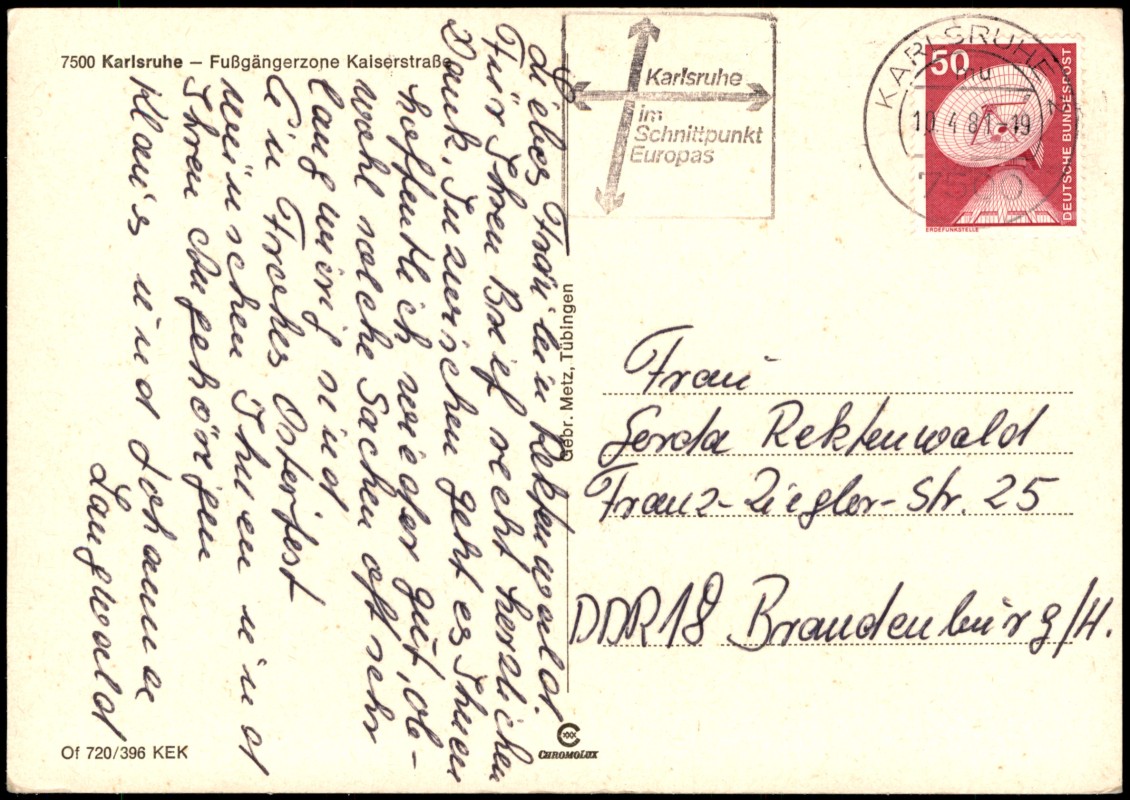 7500 Karlsruhe – Fußgängerzone Kaiserstraße
Liebes Fräulein Rektenwald.
Für Ihren Brief recht herzlichen
Dank, Inzwischen geht es Ihnen
hoffentlich wieder gut, ob-
wohl solche Sachen oft sehr
langwierig sind
Ein Frohes Osterfest
wünschen Ihnen und
Ihren Angehörigen
Klaus und Johanna
Langwald
Of 720/396 KEK
Gebr. Metz, Tübingen
CHROMOLUX
Karlsruhe
im
Schnittpunkt
Europas
KARLSRUHE
10.4.81-19
50
DEUTSCHE BUNDESPOST
ERDEFUNKSTELLE
Frau
Gerda Rektenwald
Franz-Ziegler-Str. 25
DDR 18 Brandenburg/H.